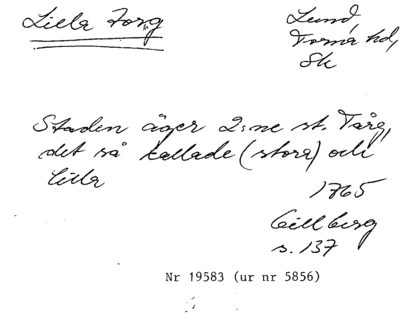 Lilla Torg
Lund,
Torna hd,
Sk
Staden äger 2:ne st. Tårg,
det så kallade (stora) och
lilla
1765
Gillberg
s. 137
Nr 19583 (ur nr 5856)